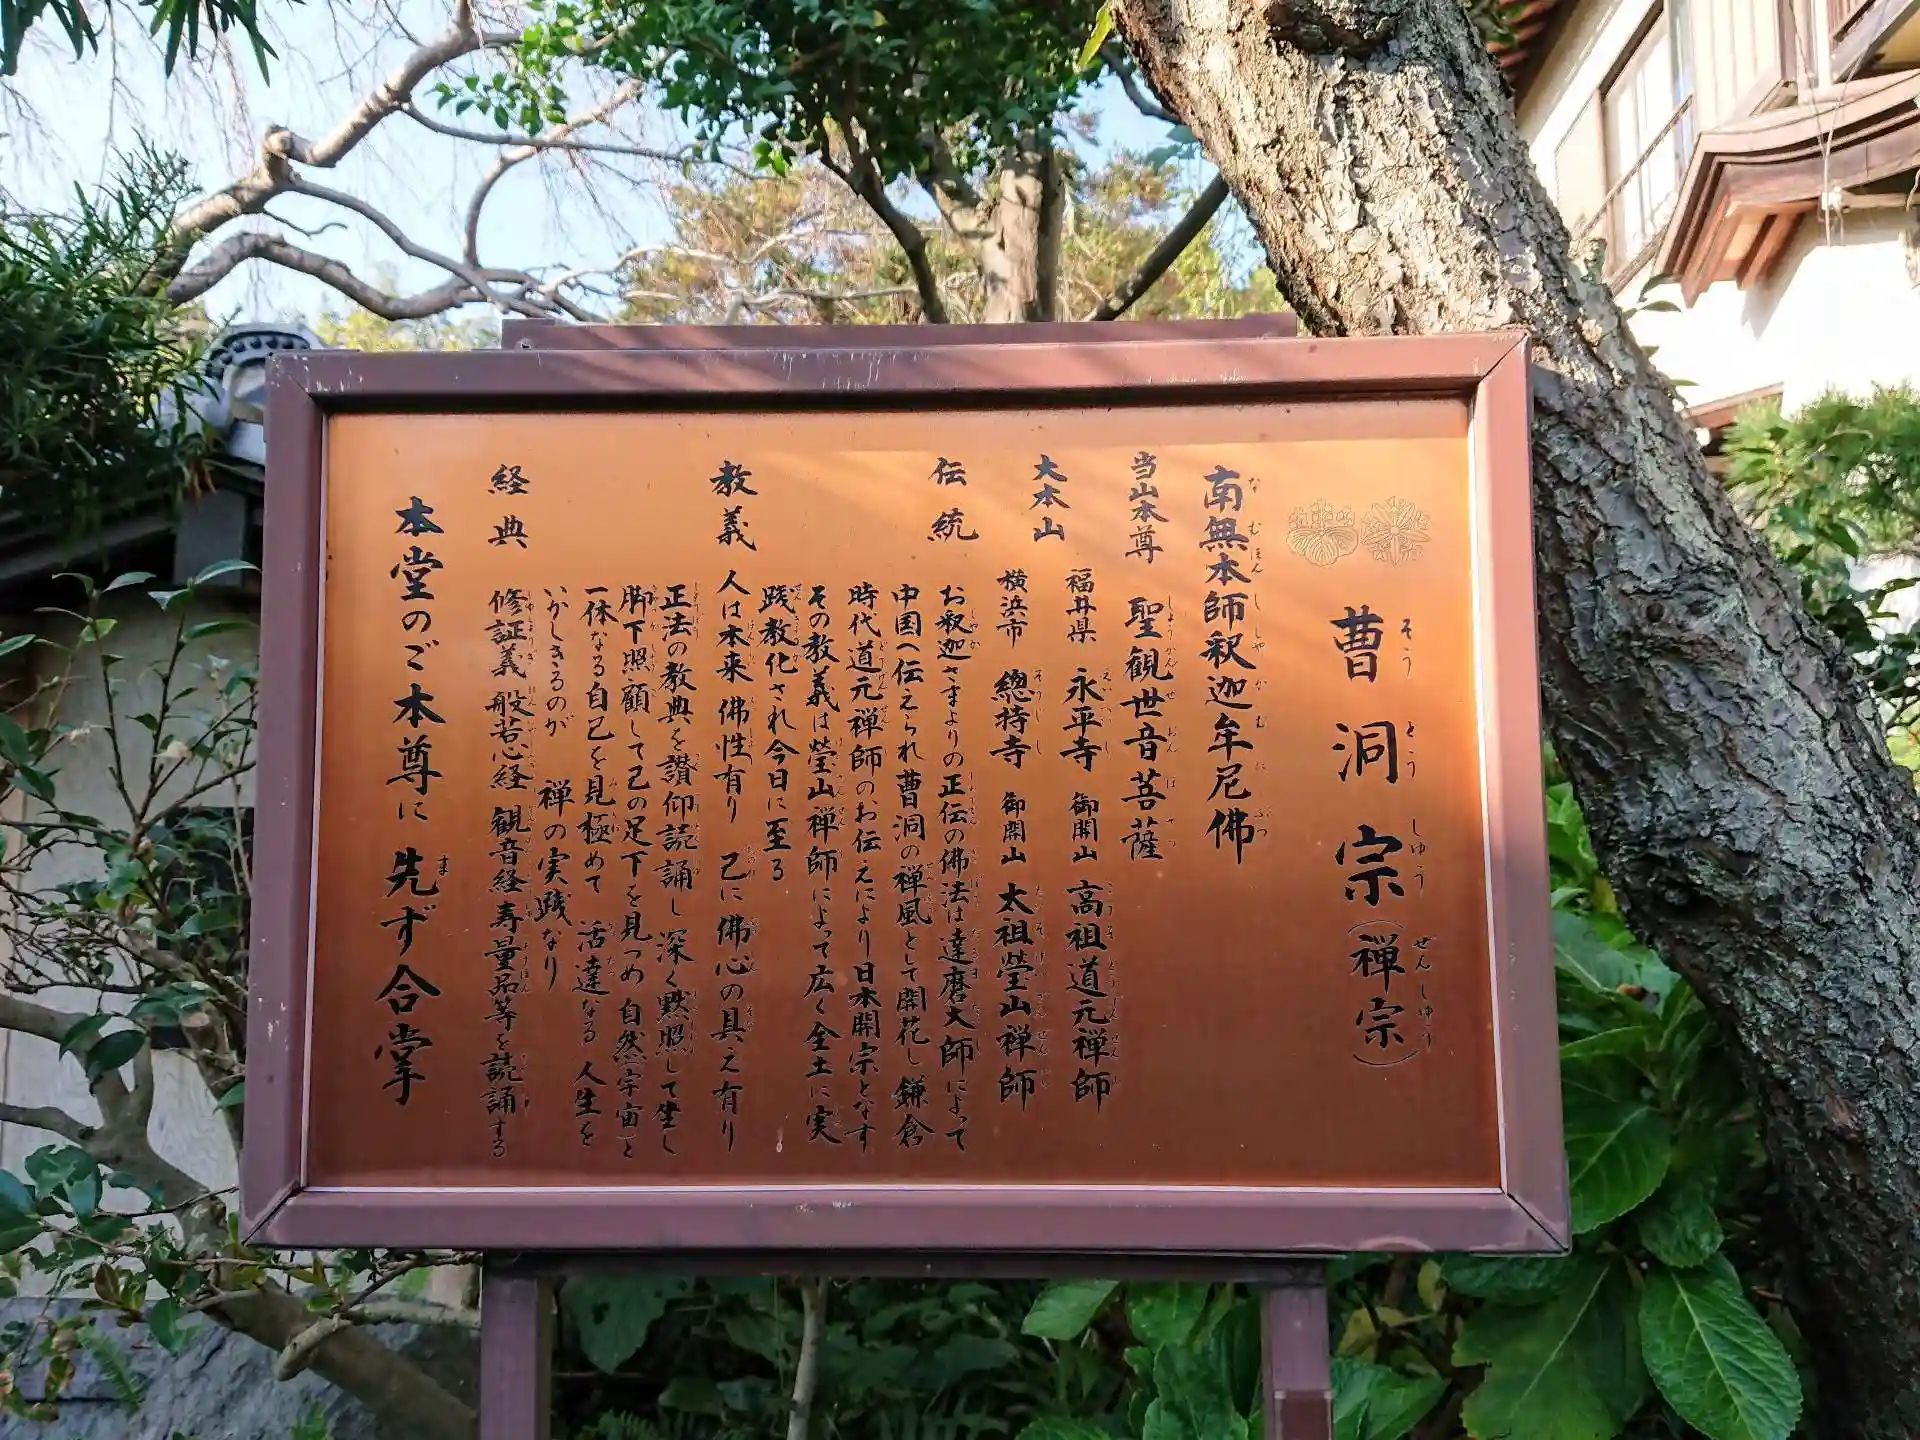 曹洞宗(禅宗)
南無本師釈迦牟尼佛
当山本尊 聖観世音菩薩
大本山 福井県 永平寺 御開山 高祖道元禅師
横浜市 總持寺 御開山 太祖瑩山禅師
伝統 お釈迦さまよりの正伝の佛法は達磨大師によって
中国へ伝えられ曹洞の禅風として開花し鎌倉
時代道元禅師のお伝えにより日本開宗となす
その教義は瑩山禅師によって広く全土に実
践教化され今日に至る
教義 人は本来佛性有り 己に佛心の具え有り
正法の教典を讃仰読誦し深く黙照して坐し
脚下照顧して己の足下を見つめ自然宇宙と
一体なる自己を見極めて 活達なる人生を
いかしきるのが 禅の実践なり
経典 修証義 般若心経 観音経 寿量品等を読誦する
本堂のご本尊に先ず合掌